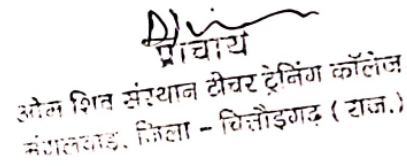 प्राचार्य
ओम शिव संस्थान टीचर ट्रेनिंग कॉलेज
मंगलवाड, जिला - चित्तौड़गढ़ (राज.)